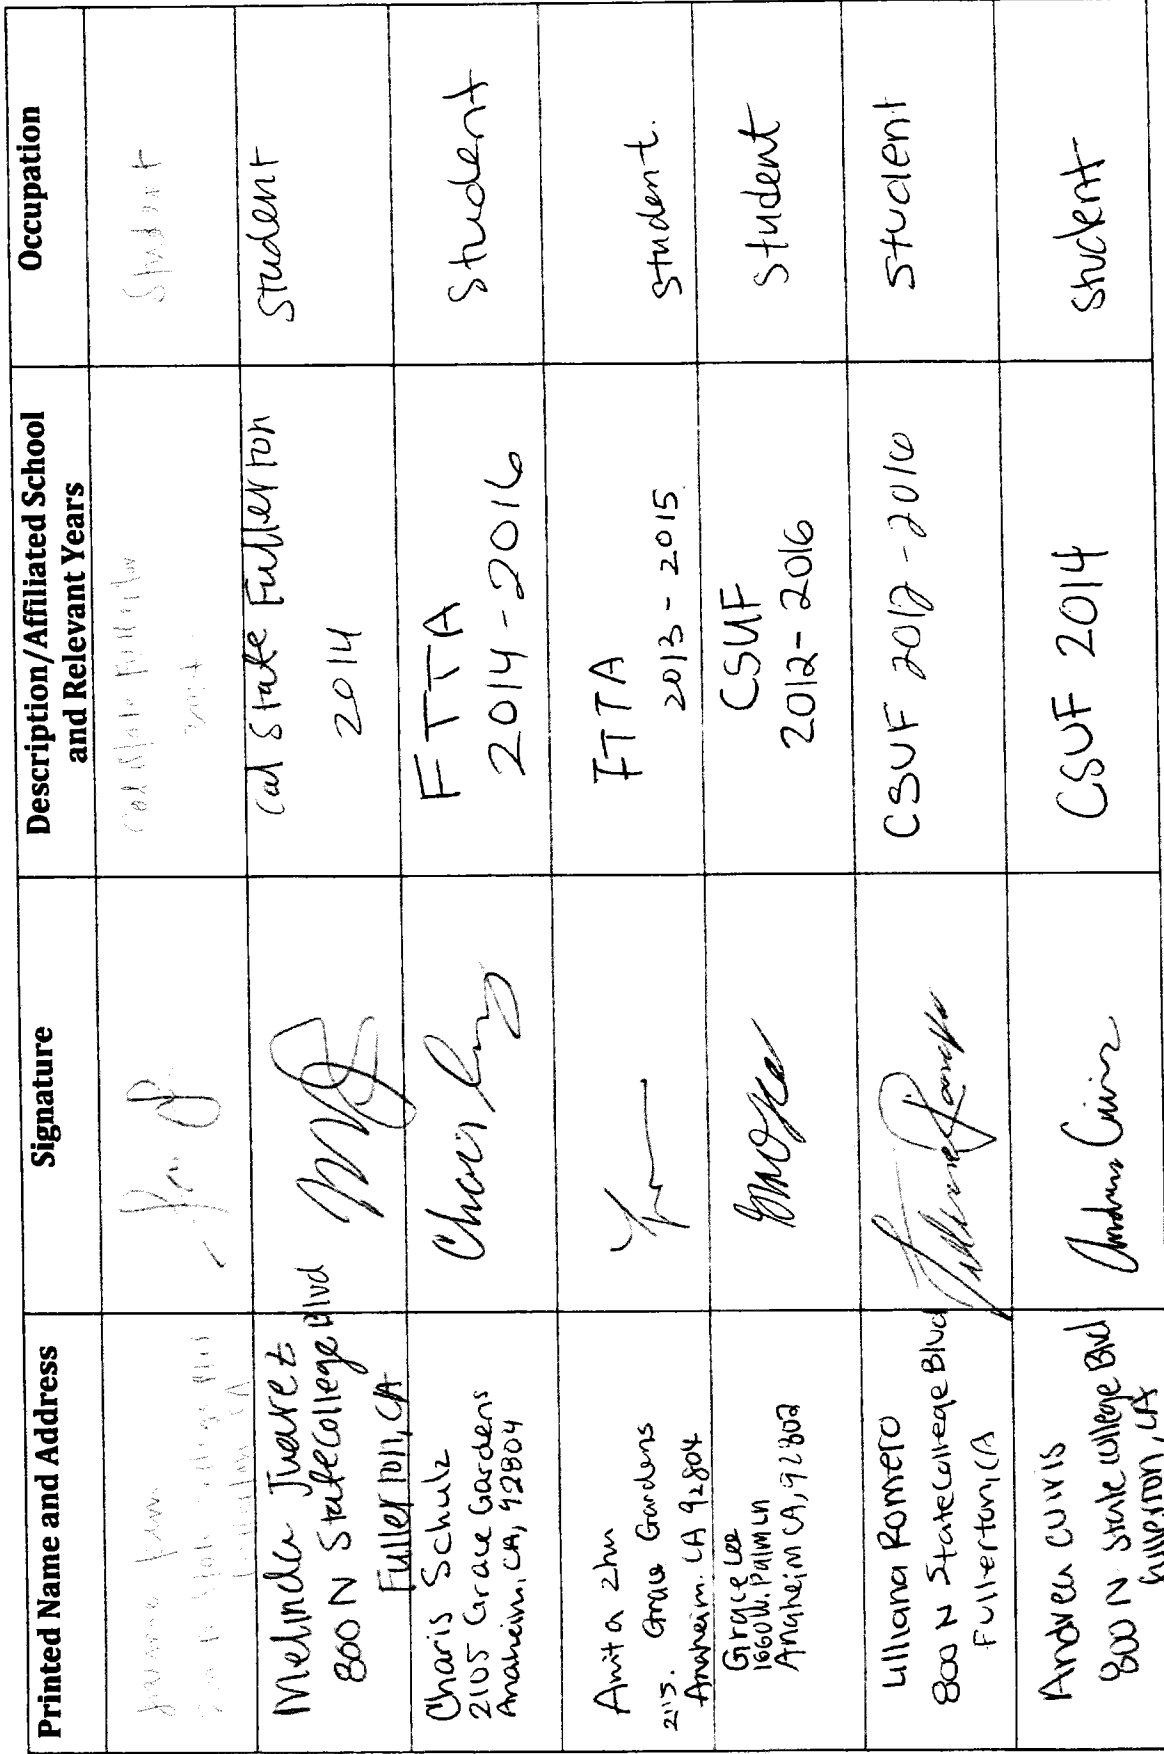 Printed Name and Address
Signature
Description/Affiliated School
and Relevant Years
Occupation
Student
Melinda Juarez
800 N State College Blvd
Fullerton, CA
Cal State Fullerton
2014
Student
Charis Schulz
2105 Grace Gardens
Anaheim, CA, 92804
FTTA
2014-2016
Student
Anita Zhu
Grace Gardens
Anaheim. CA 92804
FTTA
2013-2015
Student.
Grace Lee
1660 W. Palm Ln
Anaheim CA, 92802
CSUF
2012-2016
Student
Lilliana Romero
800 N State College Blvd
Fullerton, CA
CSUF 2012-2016
Student
Andrea
800 N State College Blvd
Fullerton, CA
CSUF 2014
Student